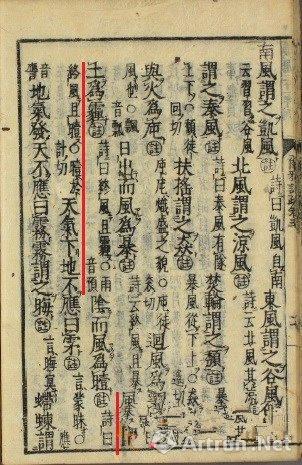 南風謂之凱風註詩曰凱風自南東風謂之谷風註
云習習谷風北風謂之涼風註詩云北風其涼
謂之泰風註詩曰泰風有隧焚輪謂之頹註暴風
上下○頹徒回切扶搖謂之猋註暴風從下上○
與火為庉註庉庉熾盛之貌○庉徒切迴風為飄
日出而風為暴註詩云終風且暴風而雨
土為霾註詩曰終風且霾○陰而風為曀註詩曰
終風且曀○曀於計切天氣下地不應曰雺註言蒙昧○
音瞀地氣發天不應曰霧霧謂之晦註言晦冥螮蝀謂
Artron.Net